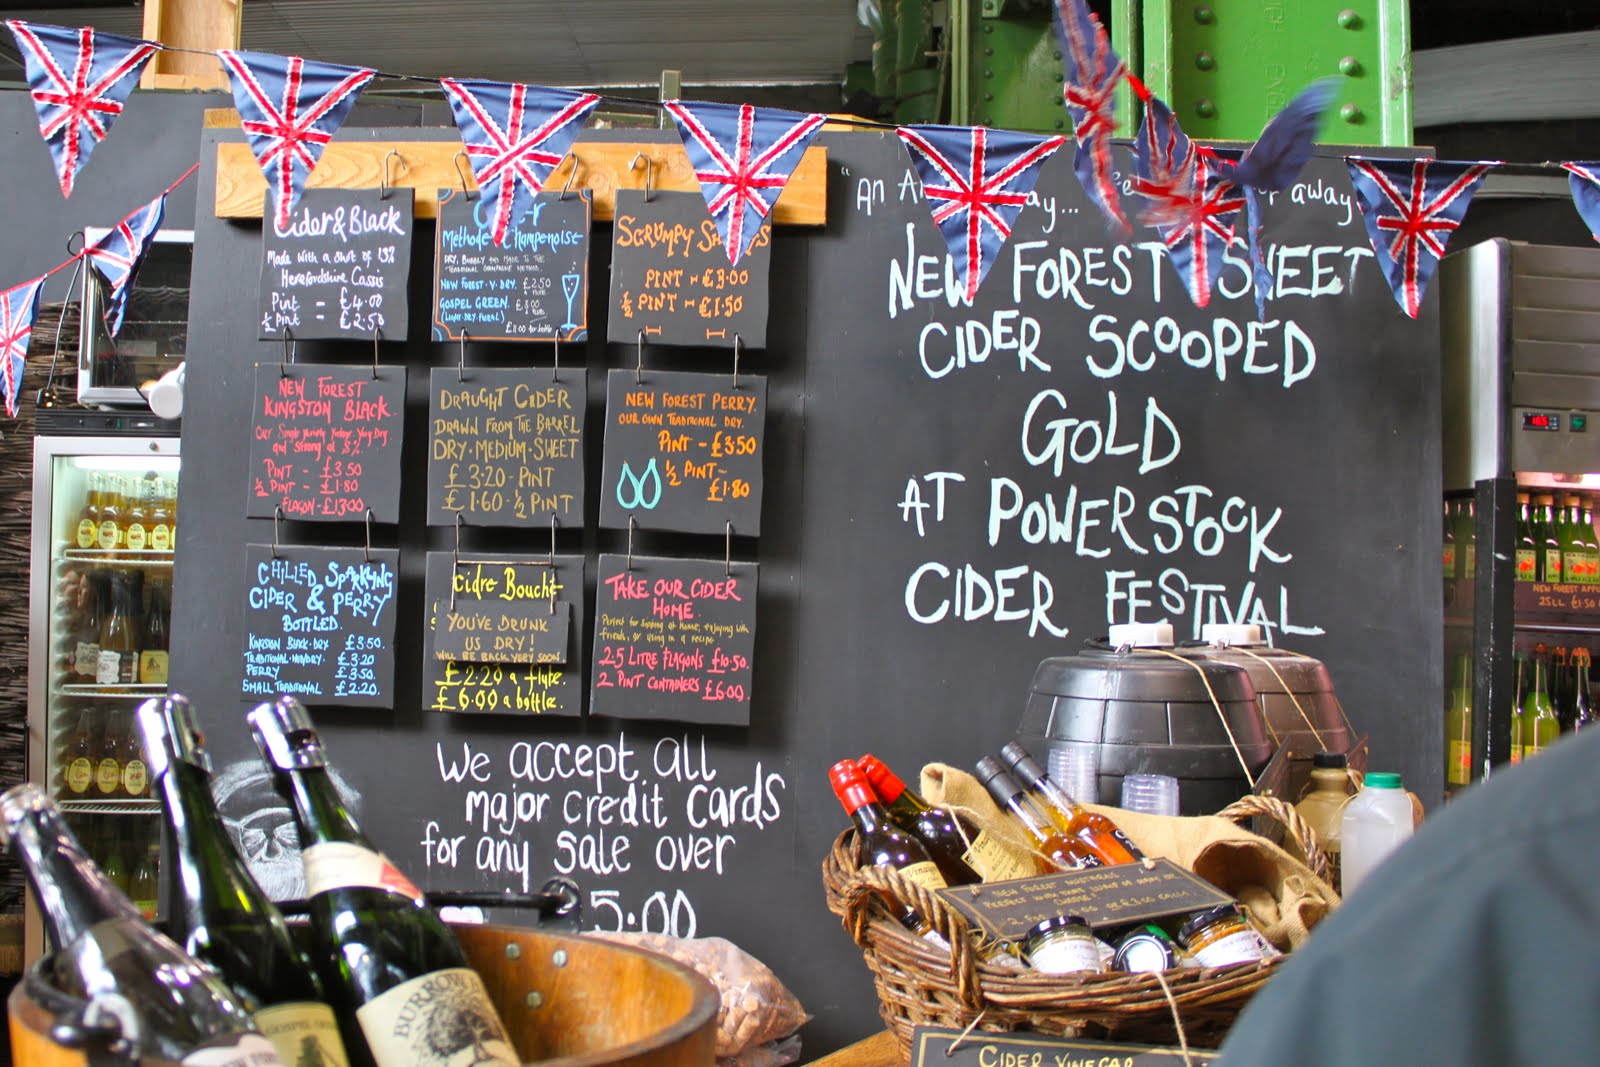 Cider & Black
Made with a shot of 15%
Herefordshire Cassis
Pint - £4.00
½ Pint - £2.50
Methode Champenoise
NEW FOREST · V. DRY. £2.50
GOSPEL GREEN. £3.00
£11.00 for bottle
SCRUMPY
PINT - £3.00
½ PINT - £1.50
NEW FOREST
KINGSTON BLACK.
and strong at 8%
PINT - £3.50
½ PINT - £1.80
FLAGON - £13.00
DRAUGHT CIDER
DRAWN FROM THE BARREL
DRY · MEDIUM · SWEET
£3.20 - PINT
£1.60 · ½ PINT
NEW FOREST PERRY.
OUR OWN TRADITIONAL DRY.
PINT - £3.50
½ PINT -
£1.80
CHILLED SPARKLING
CIDER & PERRY
BOTTLED.
KINGSTON BLACK · DRY £3.50.
TRADITIONAL · MED/DRY. £3.20
PERRY £3.50.
SMALL TRADITIONAL £2.20.
Cidre Bouché
YOU'VE DRUNK
US DRY!
WILL BE BACK VERY SOON
£2.20 a flute.
£6.00 a bottle.
TAKE OUR CIDER
HOME.
Perfect for sipping at home, enjoying with
friends, or using in a recipe.
2.5 LITRE FLAGONS £10.50.
2 PINT CONTAINERS £6.00.
We accept all
major credit cards
for any sale over
5.00
"AN away
NEW FOREST SWEET
CIDER SCOOPED
GOLD
AT POWERSTOCK
CIDER FESTIVAL
16.5
NEW FOREST
25CL £1.50
NEW FOREST MUSTARDS
CHEESE!
GOSPEL GREEN
BURROW
CIDER VINEGAR